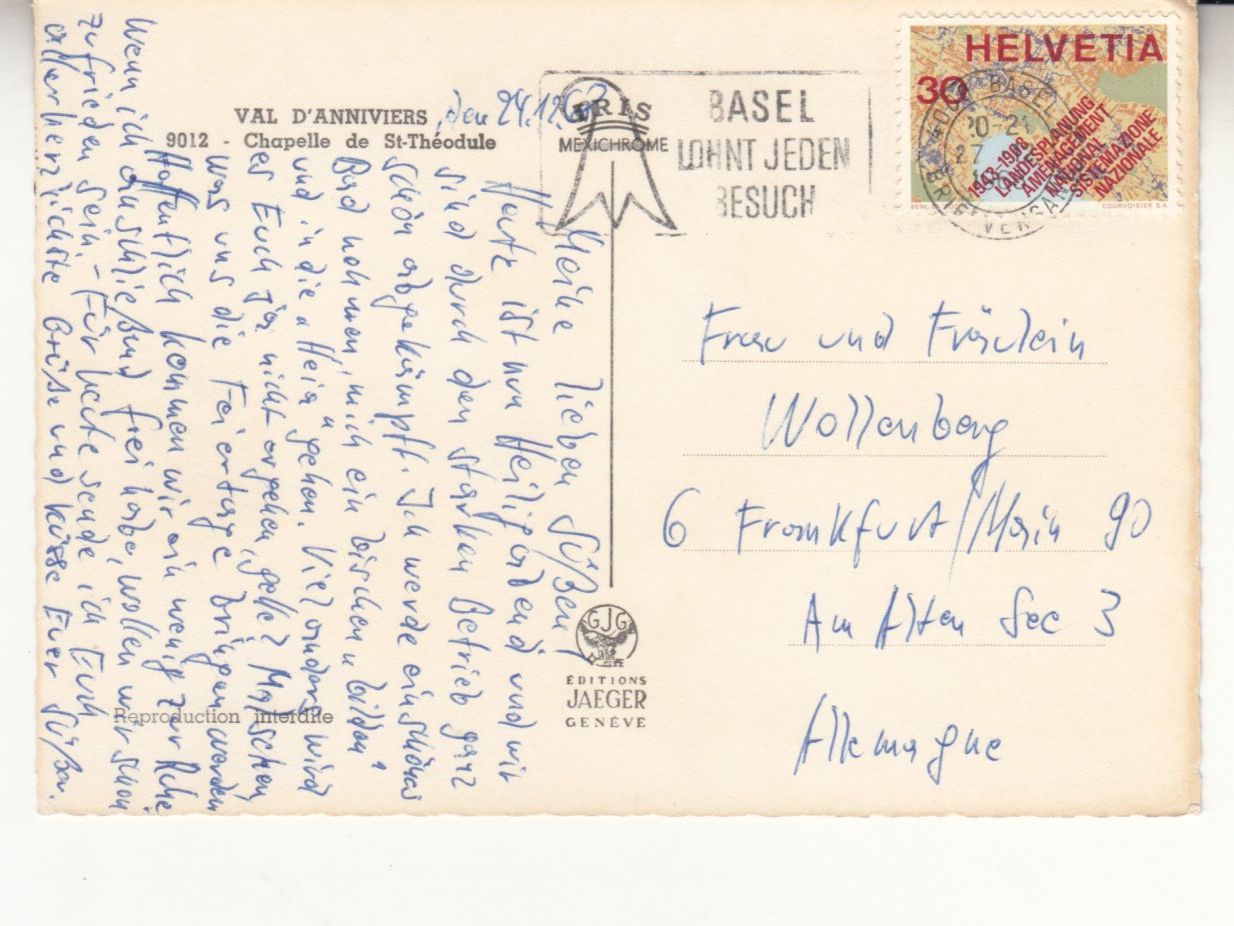 VAL D'ANNIVIERS
9012 - Chapelle de St-Théodule
IRIS
MEXICHROME
den 24.12.68
Meine lieben Süßen,
Heute ist nun Heiligabend und wir
sind durch den starken Betrieb ganz
schön abgekämpft. Ich werde ein schönes
Bad nehmen, mich ein bischen bilden
und in die "Heia" gehen. Viel anders wird
es Euch ja nicht ergehen, gelle? Mal sehen,
was uns die Feiertage bringen werden.
Hoffentlich kommen wir ein wenig zur Ruhe
Wenn ich anschließend frei habe, wollen wir schon
zufrieden sein – Für heute sende ich Euch
allerherzlichste Grüße und Küsse Euer Süßer.
BASEL
LOHNT JEDEN
BESUCH
HELVETIA
30
1943-1968
LANDESPLANUNG
AMENAGEMENT
NATIONAL
SISTEMAZIONE
NAZIONALE
COURVOISIER S.A.
BASEL
20-21
27
Frau und Fräulein
Wollenberg
6 Frankfurt/Main 90
Am Alten See 3
Allemagne
GJG
EDITIONS
JAEGER
GENÈVE
Reproduction interdite